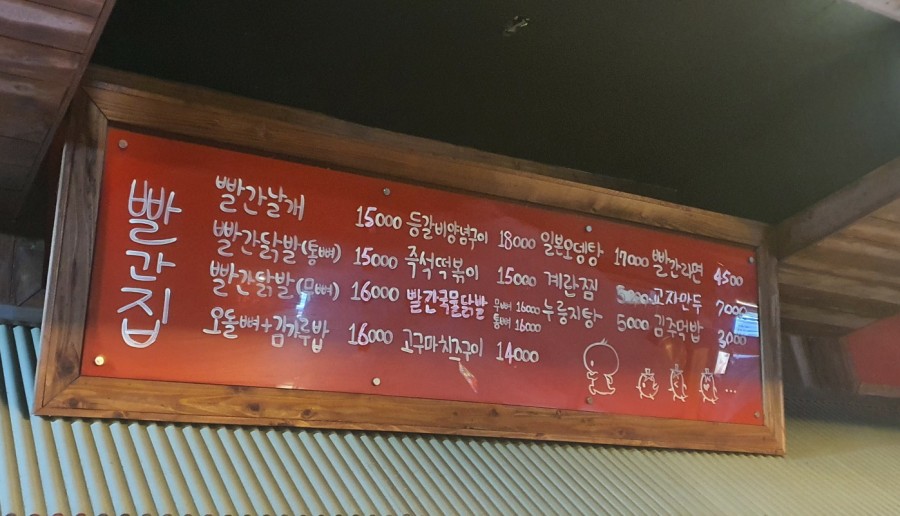 빨간집
빨간날개 15000
빨간닭발(통뼈) 15000
빨간닭발(무뼈) 16000
오돌뼈+김가루밥 16000
등갈비양념구이 18000
즉석떡볶이 15000
빨간국물닭발 무뼈 16000 통뼈 16000
고구마치즈구이 14000
일본오뎅탕 17000
계란찜
누룽지탕 5000
빨간라면 4500
교자만두 7000
김주먹밥 3000
...